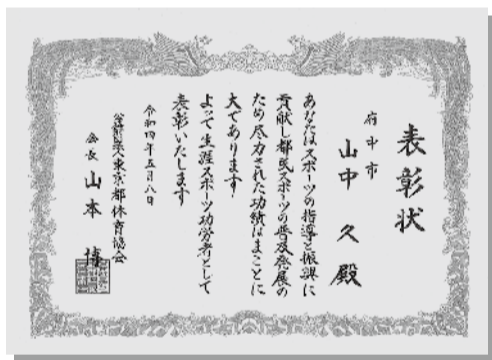 表彰状
府中市
山中 久 殿
あなたはスポーツの指導と振興に
貢献し都民スポーツの普及発展の
ため尽力された功績はまことに
大であります
よって生涯スポーツ功労者として
表彰いたします
令和四年五月八日
公益財団法人東京都体育協会
会長 山本 博